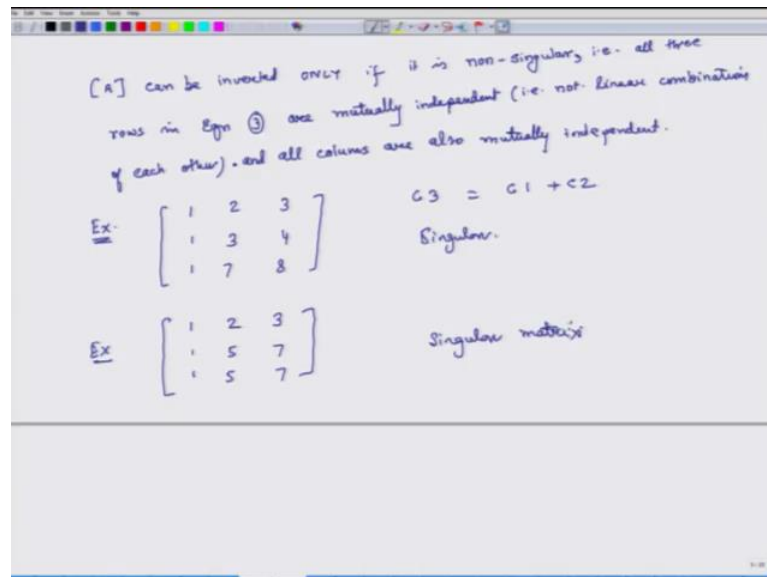 [A] can be inverted ONLY if it is non-singular, i.e. all three
rows in Eqn ③ are mutually independent (i.e. not linear combinations
of each other). and all colums are also mutually independent.
Ex. [ 1 2 3 C3 = C1 + C2
1 3 4 Singular.
1 7 8 ]
Ex [ 1 2 3
1 5 7 Singular matrix
1 5 7 ]